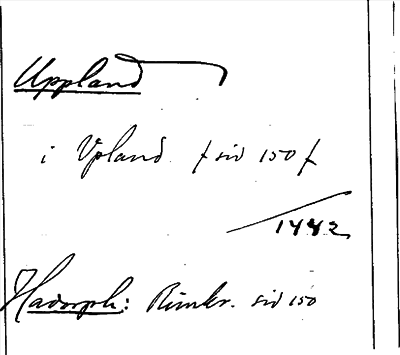 Uppland
i Vpland f sid 150 f
1442
Hadorph: Rimkr. sid 150